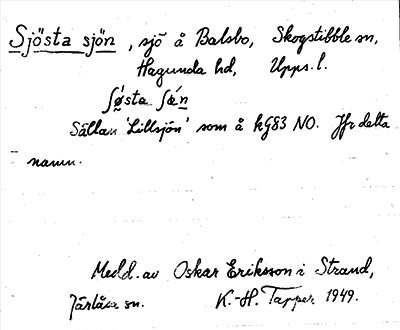 Sjösta sjön, sjö å Balsbo, Skogstibble sn,
Hagunda hd, Upps. l.
ʃø̀sta ʃǿn
Sällan 'Lillsjön' som å kG83 NO. Jfr detta
namn.
Medd. av Oskar Eriksson i Strand,
Järlåsa sn. K.-H. Tapper 1949.